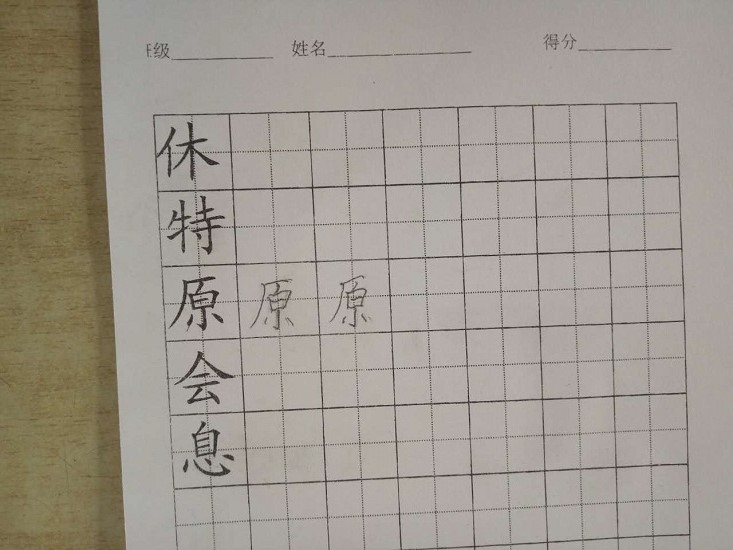 班级 姓名 得分
休
特
原 原 原
会
息